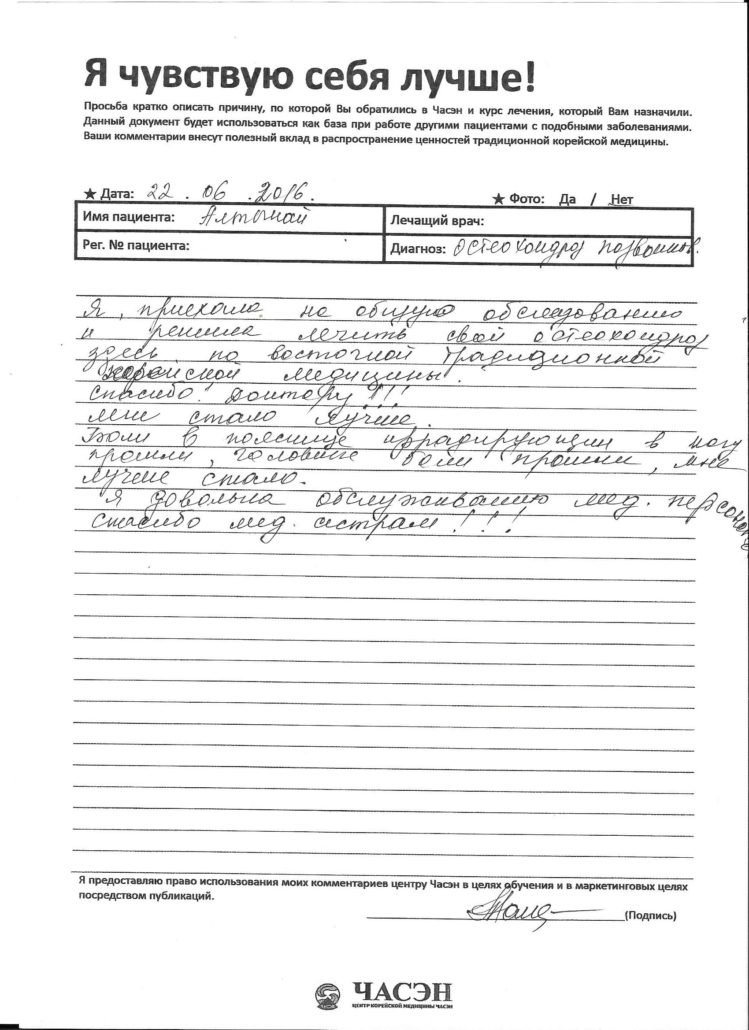 Я чувствую себя лучше!
Просьба кратко описать причину, по которой Вы обратились в Часэн и курс лечения, который Вам назначили.
Данный документ будет использоваться как база при работе другими пациентами с подобными заболеваниями.
Ваши комментарии внесут полезный вклад в распространение ценностей традиционной корейской медицины.
★ Дата: 22 . 06 . 2016. ★ Фото: Да / Нет
Имя пациента: Алтынай Лечащий врач:
Рег. № пациента: Диагноз: Остеохондроз позвонков.
Я, приехала на общую обследованию
и решила лечить свой остеохондроз
здесь по восточной традиционной
корейской медицины.
Спасибо! Доктору!!!
мне стало лучше.
Боли в пояснице иррадирующели в ногу
прошли, головные боли прошли, мне
лучше стало.
Я довольна обслуживанию мед. персонал
Спасибо мед. сестрам!!!
Я предоставляю право использования моих комментариев центру Часэн в целях обучения и в маркетинговых целях
посредством публикаций.
(Подпись)
ЧАСЭН
ЦЕНТР КОРЕЙСКОЙ МЕДИЦИНЫ ЧАСЭН